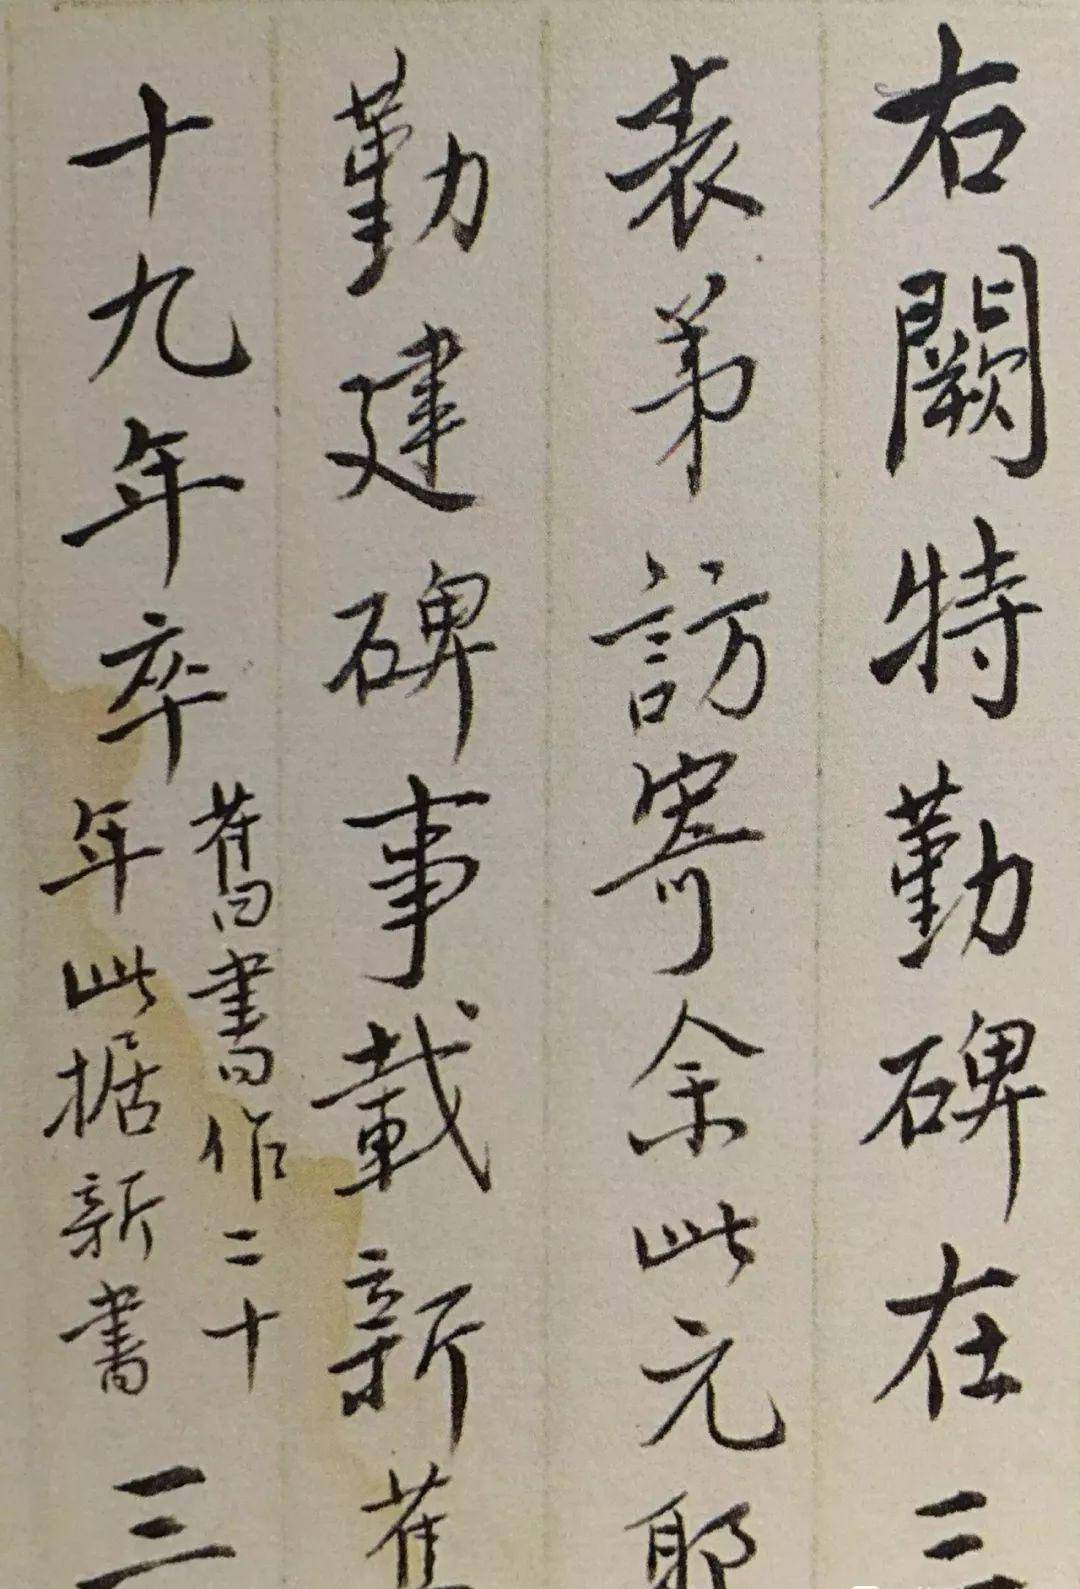 右闕特勤碑在三
表弟訪寄余此元耶
勤建碑事載新舊
十九年卒舊書作二十
年此据新書三